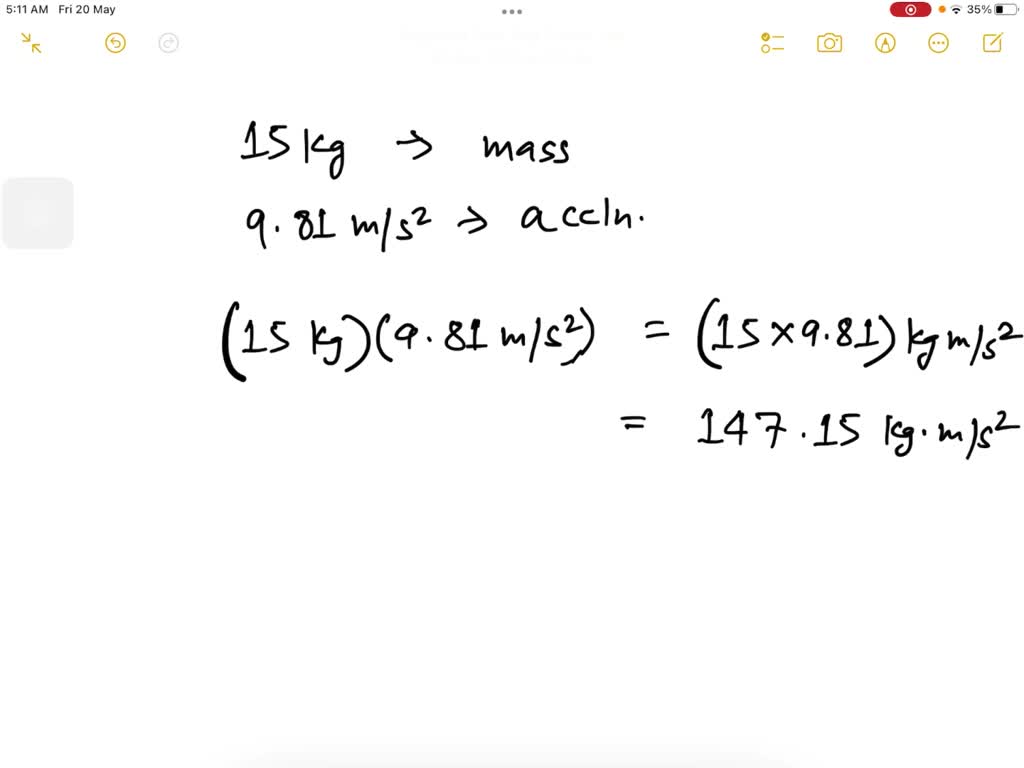 5:11 AM Fri 20 May
35%
15 kg → mass
9.81 m/s² → accln.
(15 kg)(9.81 m/s²) = (15 × 9.81) kg m/s²
= 147.15 kg·m/s²